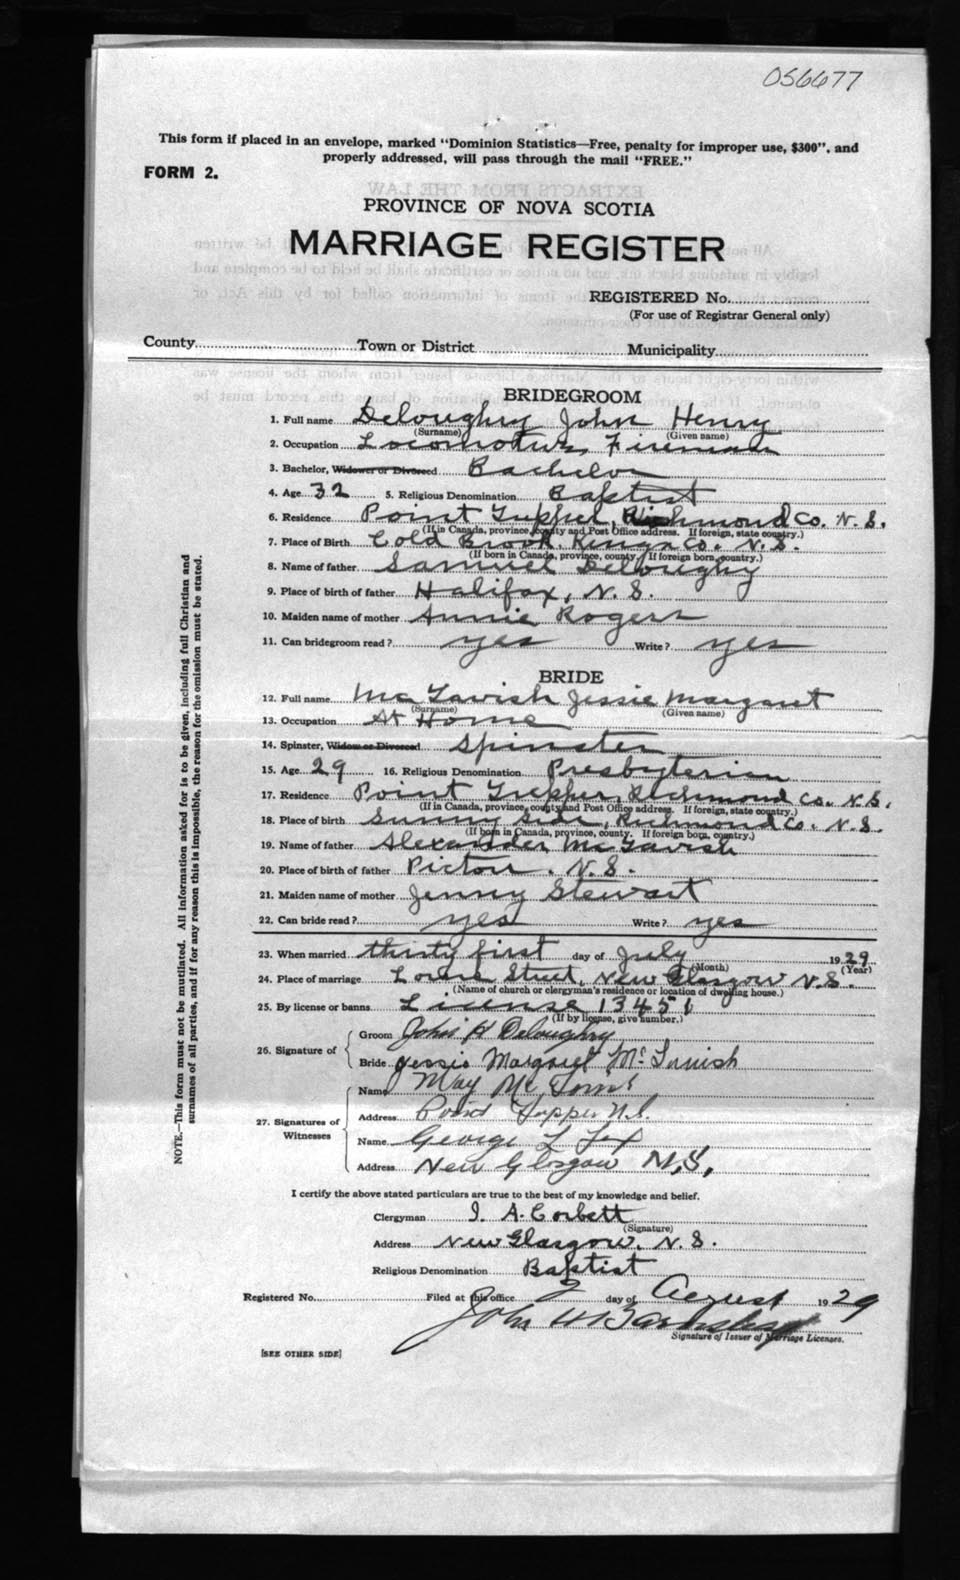 056677
This form if placed in an envelope, marked "Dominion Statistics—Free, penalty for improper use, $300", and
properly addressed, will pass through the mail "FREE."
FORM 2.
PROVINCE OF NOVA SCOTIA
MARRIAGE REGISTER
REGISTERED No.
(For use of Registrar General only)
County Town or District Municipality
BRIDEGROOM
1. Full name Deloughry John Henry
(Surname) (Given name)
2. Occupation Locomotive Fireman
3. Bachelor, Widower or Divorced Bachelor
4. Age 32 5. Religious Denomination Baptist
6. Residence Point Tupper, Richmond Co. N. S.
(If in Canada, province, county and Post Office address. If foreign, state country.)
7. Place of Birth Cold Brook Kings Co. N. S.
(If born in Canada, province, county. If foreign born, country.)
8. Name of father Samuel Deloughry
9. Place of birth of father Halifax, N. S.
10. Maiden name of mother Annie Rogers
11. Can bridegroom read? yes Write? yes
BRIDE
12. Full name McTavish Jessie Margaret
(Surname) (Given name)
13. Occupation At Home
14. Spinster, Widow or Divorced Spinster
15. Age 29 16. Religious Denomination Presbyterian
17. Residence Point Tupper, Richmond Co. N. S.
(If in Canada, province, county and Post Office address. If foreign, state country.)
18. Place of birth Sunny Side, Richmond Co. N. S.
(If born in Canada, province, county. If foreign born, country.)
19. Name of father Alexander McTavish
20. Place of birth of father Pictou. N. S.
21. Maiden name of mother Jenny Stewart
22. Can bride read? yes Write? yes
23. When married thirty first day of July 1929
(Month) (Year)
24. Place of marriage Street, New Glasgow N. S.
(Name of church or clergyman's residence or location of dwelling house.)
25. By license or banns License 13451
(If by license, give number.)
26. Signature of
Groom John H Deloughry
Bride Jessie Margaret McTavish
27. Signatures of Witnesses
Name May Mc
Address Point Tupper N.S.
Name George L Fox
Address New Glasgow N.S.
I certify the above stated particulars are true to the best of my knowledge and belief.
Clergyman I. A. Corbett
(Signature)
Address New Glasgow, N. S.
Religious Denomination Baptist
Registered No. Filed at this office 2 day of August 1929
John
Signature of Issuer of Marriage Licenses.
[SEE OTHER SIDE]
NOTE.—This form must not be mutilated. All information asked for is to be given, including full Christian and
surnames of all parties, and if for any reason this is impossible, the reason for the omission must be stated.